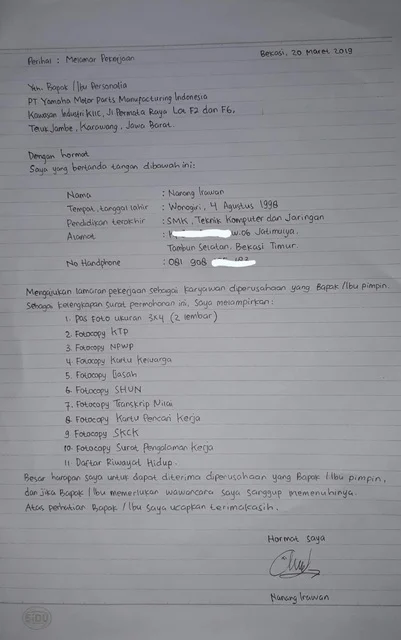 Perihal : Melamar Pekerjaan
Bekasi, 20 Maret 2019
Yth. Bapak / Ibu Personalia
PT Yamaha Motor Parts Manufacturing Indonesia
Kawasan Industri KIIC, Jl Permata Raya Lot F2 dan F6,
Teluk Jambe, Karawang, Jawa Barat.
Dengan hormat
Saya yang bertanda tangan dibawah ini:
Nama : Nanang Irawan
Tempat, tanggal lahir : Wonogiri, 4 Agustus 1998
Pendidikan terakhir : SMK, Teknik Komputer dan Jaringan
Alamat : w.06 Jatimulya,
Tambun Selatan. Bekasi Timur.
No Handphone : 081 908
Mengajukan lamaran pekerjaan sebagai karyawan diperusahaan yang Bapak /Ibu pimpin.
Sebagai kelengkapan surat permohonan ini, Saya melampirkan:
1. Pas Foto ukuran 3x4 (2 lembar)
2. Fotocopy KTP
3. Fotocopy NPWP
4. Fotocopy Kartu Keluarga
5. Fotocopy Ijasah
6. Fotocopy SHUN
7. Fotocopy Transkrip Nilai
8. Fotocopy Kartu Pencari Kerja
9. Fotocopy SKCK
10. Fotocopy Surat Pengalaman Kerja
11. Daftar Riwayat Hidup.
Besar harapan saya untuk dapat diterima diperusahaan yang Bapak /Ibu pimpin,
dan jika Bapak / Ibu memerlukan wawancara saya sanggup memenuhinya.
Atas perhatian Bapak / Ibu saya ucapkan terimakasih.
Hormat saya
Nanang Irawan
SIDU